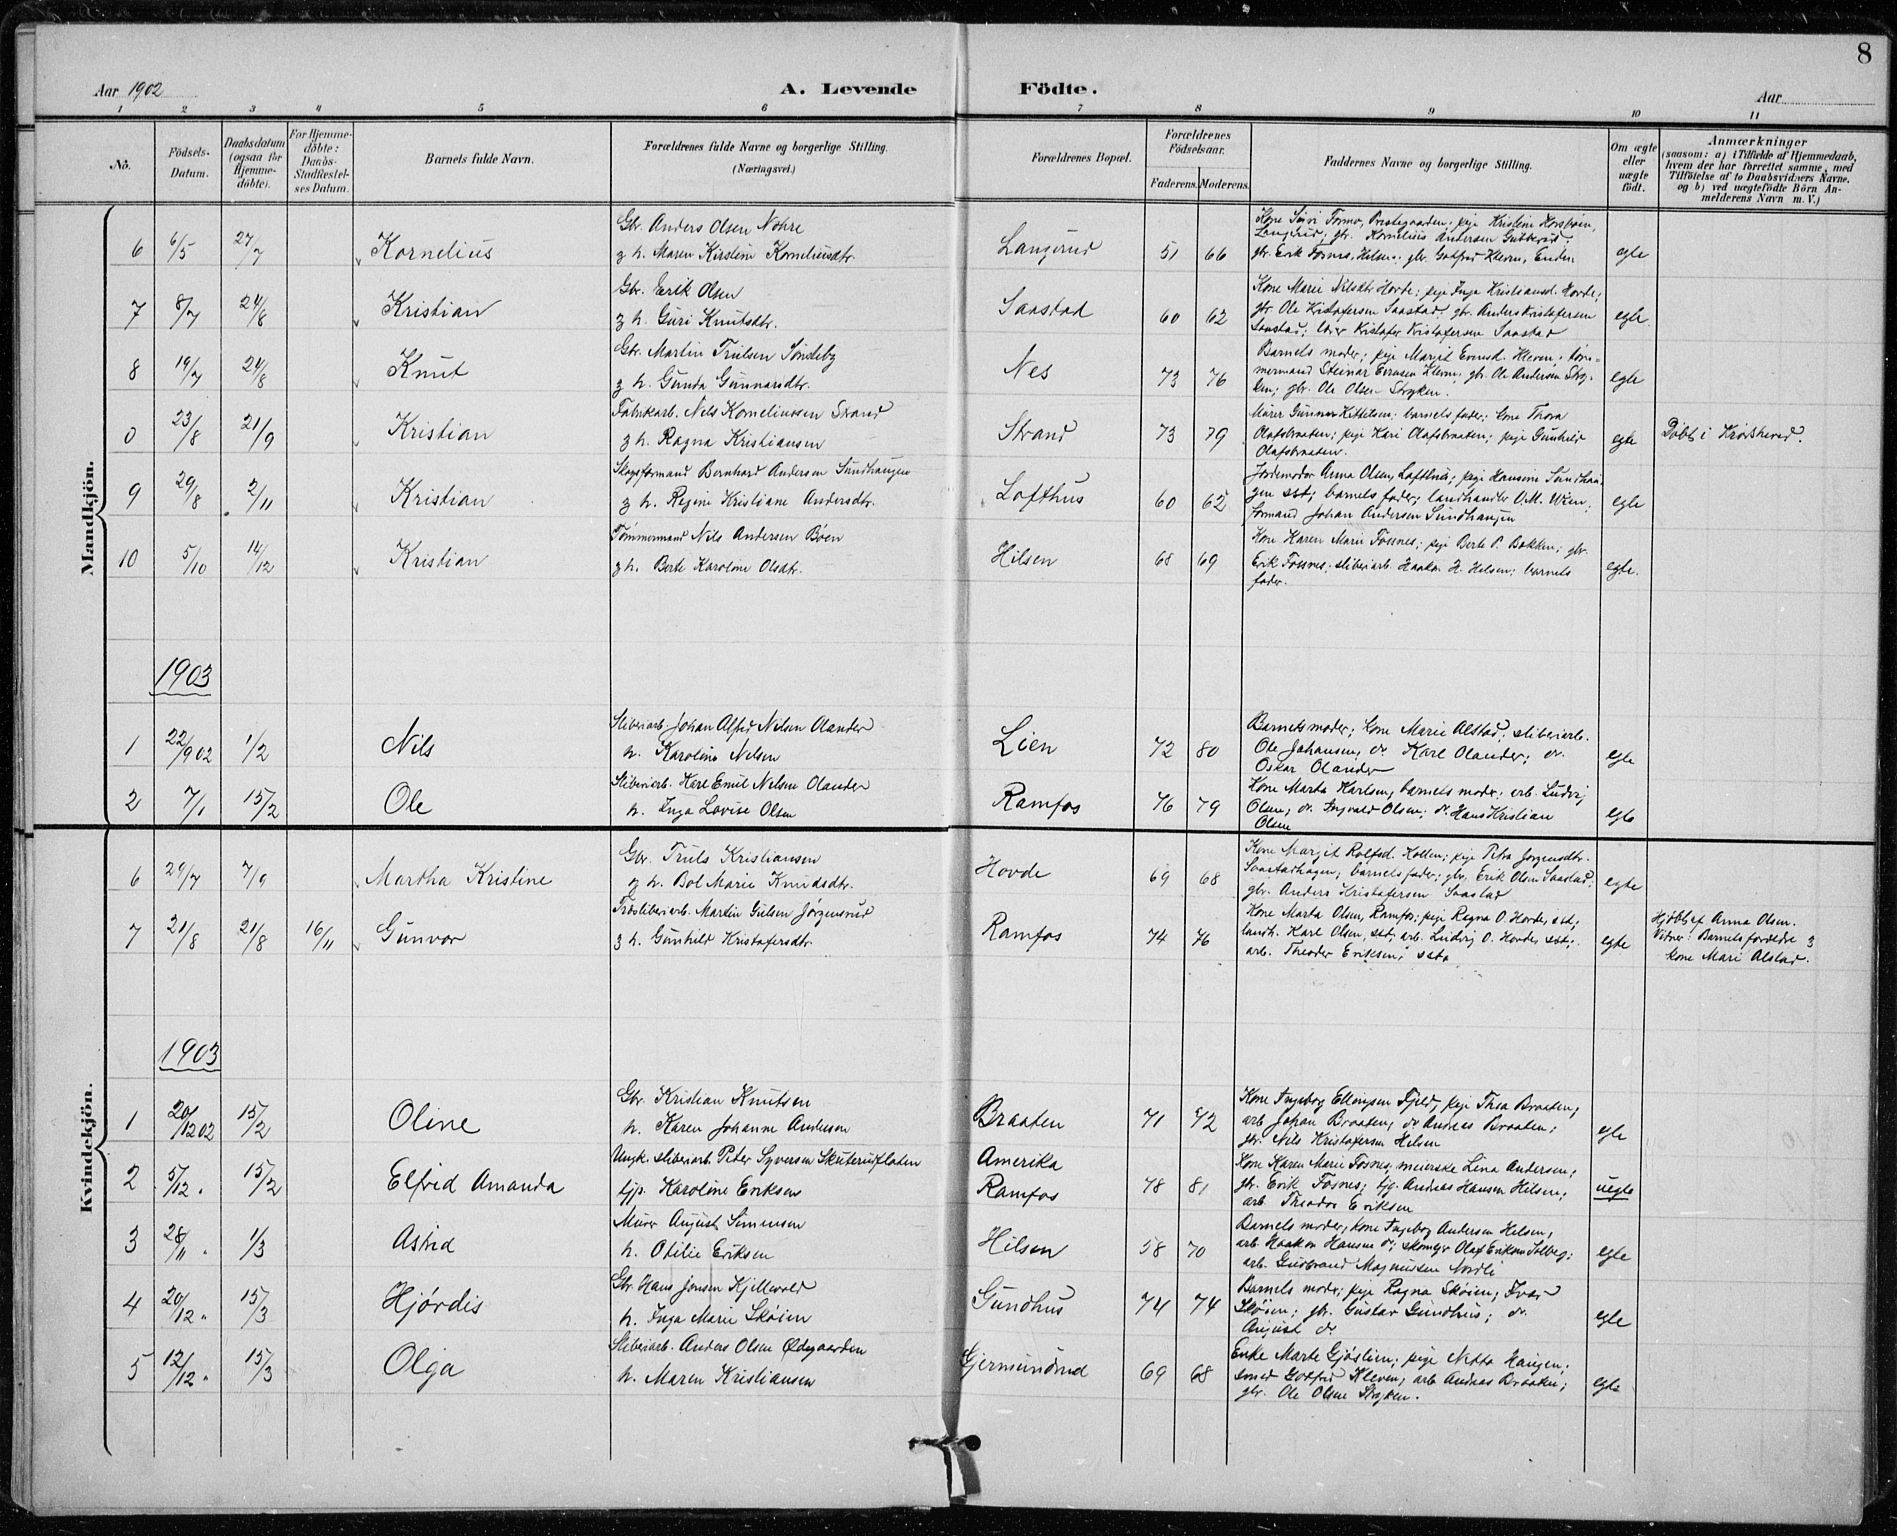 8
Aar 1902
A. Levende Födte.
Aar
1 2 3 4 5 6 7 8 9 10 11
No.
Födsels-
Datum.
Daabsdatum
(ogsaa for
Hjemme-
döbte).
For Hjemme-
döbte:
Daabs-
Stadfæstel-
ses Datum.
Barnets fulde Navn.
Forældrenes fulde Navne og borgerlige Stilling.
(Næringsvei.)
Forældrenes Bopæl.
Forældrenes
Födselsaar.
Faderens. Moderens.
Faddernes Navne og borgerlige Stilling.
Om ægte
eller
uægte
födt.
Anmærkninger
(saasom: a) i Tilfælde af Hjemmedaab,
hvem der har forrettet samme, med
Tilföielse af to Daabsvidners Navne,
og b) ved uægtefödte Börn An-
melderens Navn m. V.)
Mandkjön.
6 6/5 27/7 Kornelius
Gbr. Anders Olsen Nøhre
g h. Maren Kirstine Korneliusdtr.
Langerud 51 66
Langerud; gbr. Kornelius Andersen Gubberud;
gbr. Erik Fosnes, Hilsen; gbr. Gotfred Kleven, Enden.
egte
7 8/7 24/8 Kristian
Gbr. Erik Olsen
g h. Guri Knutsdtr.
Saastad 60 62
Kone Marie Nilsdtr Hovde; pige Inga Kristiansd. Hovde;
gbr Ole Kristofersen Saastad; gbr. Anders Kristofersen
Saastad; lærer Kristofer Kristofersen Saastad
egte.
8 19/7 24/8 Knut
Gbr. Martin Trulsen Sønsteby
g h. Gunda Gunnarsdtr.
Nes 73 76
Barnets moder; pige Margit Evensd. Kleven; tøm-
mermand Steinar Evensen Kleven; gbr. Ole Andersen Stry-
ken; gbr. Ole Olsen Stryken.
egte
0 23/8 21/9 Kristian
Fabrikarb. Nels Korneliussen Strand
g h. Ragna Kristiansen
Strand 73 79
Murer Gunnar Kittilsen; barnets fader; kone Thora
Olafsbraaten; pige Kari Olafsbraaten; pige Gunhild
Olafsbraaten.
egte Døbt i Krødsherred.
9 29/8 2/11 Kristian
Skogsformand Bernhard Andersen Sundhaugen
g h. Regine Kristiane Andersdtr.
Lofthus 60 62
Jordemoder Anna Olsen, Lofthus; pige Hansine Sundhau-
gen sst; barnets fader; landhandler O. M. Wien;
formand Johan Andersen Sundhaugen
egte
10 5/10 14/12 Kristian
Tømmermand Nils Andersen Bøen
g h. Berte Karoline Olsdtr.
Hilsen 68 69
Kone Karen Marie Fosnes; pige Berte P. Bakken; gbr.
Erik Fosnes; sliberiarb. Haakon H. Hilsen; barnets
fader.
egte.
1903
1 22/9 02 1/2 Nils
Sliberiarb. Johan Alfred Nilsen Olander
h. Karoline Nelsen
Lien 72 80
Barnets moder; kone Marie Alstad; sliberiarb.
Ole Johansen; do Karl Olander; do.
Oskar Olander
egte
2 7/1 15/2 Ole
Sliberiarb. Karl Emil Nilsen Olander
h. Inga Lovise Olsen
Ramfos 76 79
Kone Marta Karlsen; barnets moder; arb. Ludvig
Olsen; do. Ingvald Olsen; do. Hans Kristian
Olsen
egte
Kvindekjön.
6 29/7 7/9 Martha Kristine
Gbr. Truls Kristiansen
g h. Bol Marie Knudsdtr.
Hovde 69 68
Kone Margit Rolfsd. Kollen; pige Petra Jørgensdtr.
Saastadhagen; barnets fader; gbr. Erik Olsen Saastad;
gbr. Anders Kristofersen Saastad
egte
7 21/8 21/8 16/11 Gunvor
Træsliberiarb. Martin Gulsen Jørgensrud
g h. Gunhild Kristofersdtr.
Ramfos 74 76
Kone Marta Olsen, Ramfos; pige Ragna O. Hovde, sst;
landh. Karl Olsen, sst; arb. Ludvig O. Hovde, sst;
arb. Theodor Eriksen; sst.
egte
Hjdøbt af Anna Olsen.
Vidner: Barnets forældre g
kone Mari Alstad.
1903
1 20/12 02 15/2 Oline
Gbr. Kristian Knutsen
h. Karen Johanne Andersen
Braaten 71 72
Kone Ingeborg Ellingsen Fjeld; pige Thea Braaten;
arb. Johan Braaten; do Andreas Braaten;
gbr. Nils Kristofersen Hilsen
egte
2 5/12 " 15/2 Elfrid Amanda
Ungk. sliberiarb. Peter Syversen Skuteruifloten
tjp. Karoline Eriksen
Amerika
Ramfos 78 81
Kone Karen Marie Fosnes; meierske Lina Andersen;
gbr. Erik Fosnes; tjg. Andreas Hansen Hilsen;
arb. Theodor Eriksen
uegte
3 28/11 " 1/3 Astrid
Murer August Simensen
h. Otilie Eriksen
Hilsen 58 70
Barnets moder; kone Ingeborg Andersen Hilsen;
arb. Haakon Hansen do; skomgr Olaf Eriksen Solberg;
arb. Gudbrand Magnussen Nordli
egte
4 20/12 " 15/3 Hjørdis
Gbr. Hans Jensen Kjillevold
h. Inga Marie Skøien
Gundhus 74 74
Barnets moder; pige Ragna Skøien; Ivar
Skøien; gbr. Gustav Gundhus; do.
August do
egte
5 12/12 " 15/3 Olga
Sliberiarb. Anders Olsen Ødegaarden
h. Maren Kristiansen
Gjermundrud 69 68
Enke Marte Gjøslien; pige Netta Haugen;
smed Gotfred Kleven; arb Andreas Braaten;
gbr. Ole Olsen Stryken.
egte